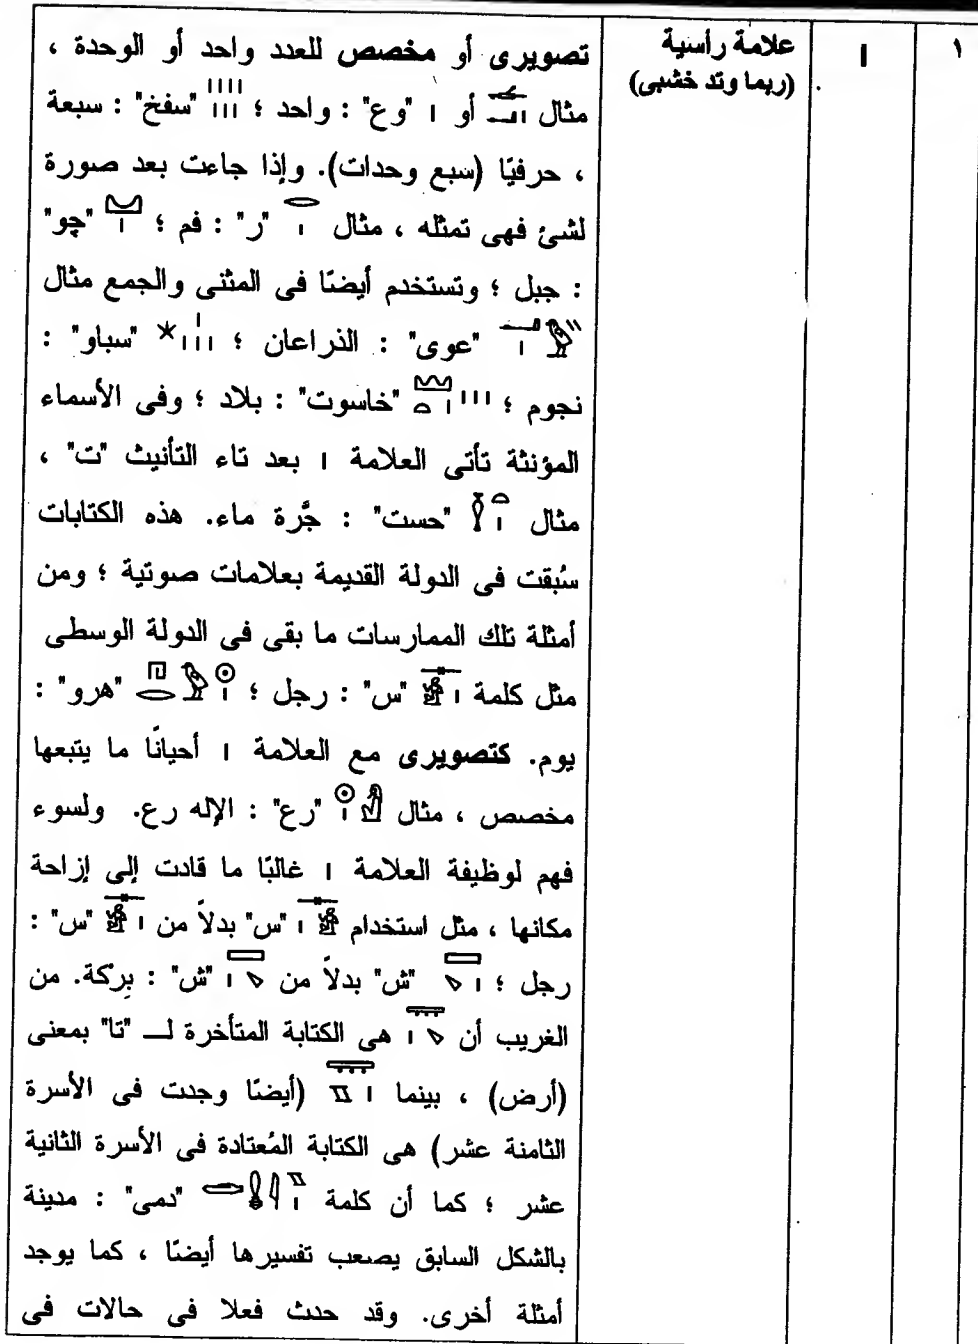 ١ | 𓏤 | علامة رأسية | تصويرى أو مخصص للعدد واحد أو الوحدة ،
(ربما وتد خشبى) | مثال أو 𓏤 "وع" : واحد ؛ "سفخ" : سبعة
، حرفيًا (سبع وحدات). وإذا جاعت بعد صورة
لشئ فهى تمثله ، مثال 𓂋𓏤 "ر" : فم ؛ 𓈋𓏤 "چو"
: جبل ؛ وتستخدم أيضًا فى المثنى والجمع مثال
"عوى" : الذراعان ؛ 𓇼𓏤𓏤𓏤𓏤 "سباو" :
نجوم ؛ 𓈉𓏏𓏤𓏤𓏤𓏤 "خاسوت" : بلاد ؛ وفى الأسماء
المؤنثة تأتى العلامة 𓏤 بعد تاء التأنيث "ت" ،
مثال 𓎿𓏏𓏤 "حست" : جًرة ماء. هذه الكتابات
سُبقت فى الدولة القديمة بعلامات صوتية ؛ ومن
أمثلة تلك الممارسات ما بقى فى الدولة الوسطى
مثل كلمة 𓊃𓀀𓏤 "س" : رجل ؛ 𓉔𓂋𓅱𓇳𓏤 "هرو" :
يوم. كتصويرى مع العلامة 𓏤 أحيانًا ما يتبعها
مخصص ، مثال 𓇳𓏤𓀭 "رع" : الإله رع. ولسوء
فهم لوظيفة العلامة 𓏤 غالبًا ما قادت إلى إزاحة
مكانها ، مثل استخدام 𓊃𓏤𓀀 "س" بدلاً من 𓊃𓀀𓏤 "س" :
رجل ؛ 𓈙𓏤𓈇 "ش" بدلاً من 𓈙𓈇𓏤 "ش" : بِرْكة. من
الغريب أن 𓇾𓈇𓏤 هى الكتابة المتأخرة لـــ "تا" بمعنى
(أرض) ، بينما (أيضًا وجدت فى الأسرة
الثامنة عشر) هى الكتابة المُعتادة فى الأسرة الثانية
عشر ؛ كما أن كلمة "دمى" : مدينة
بالشكل السابق يصعب تفسيرها أيضًا ، كما يوجد
أمثلة أخرى. وقد حدث فعلا فى حالات فى